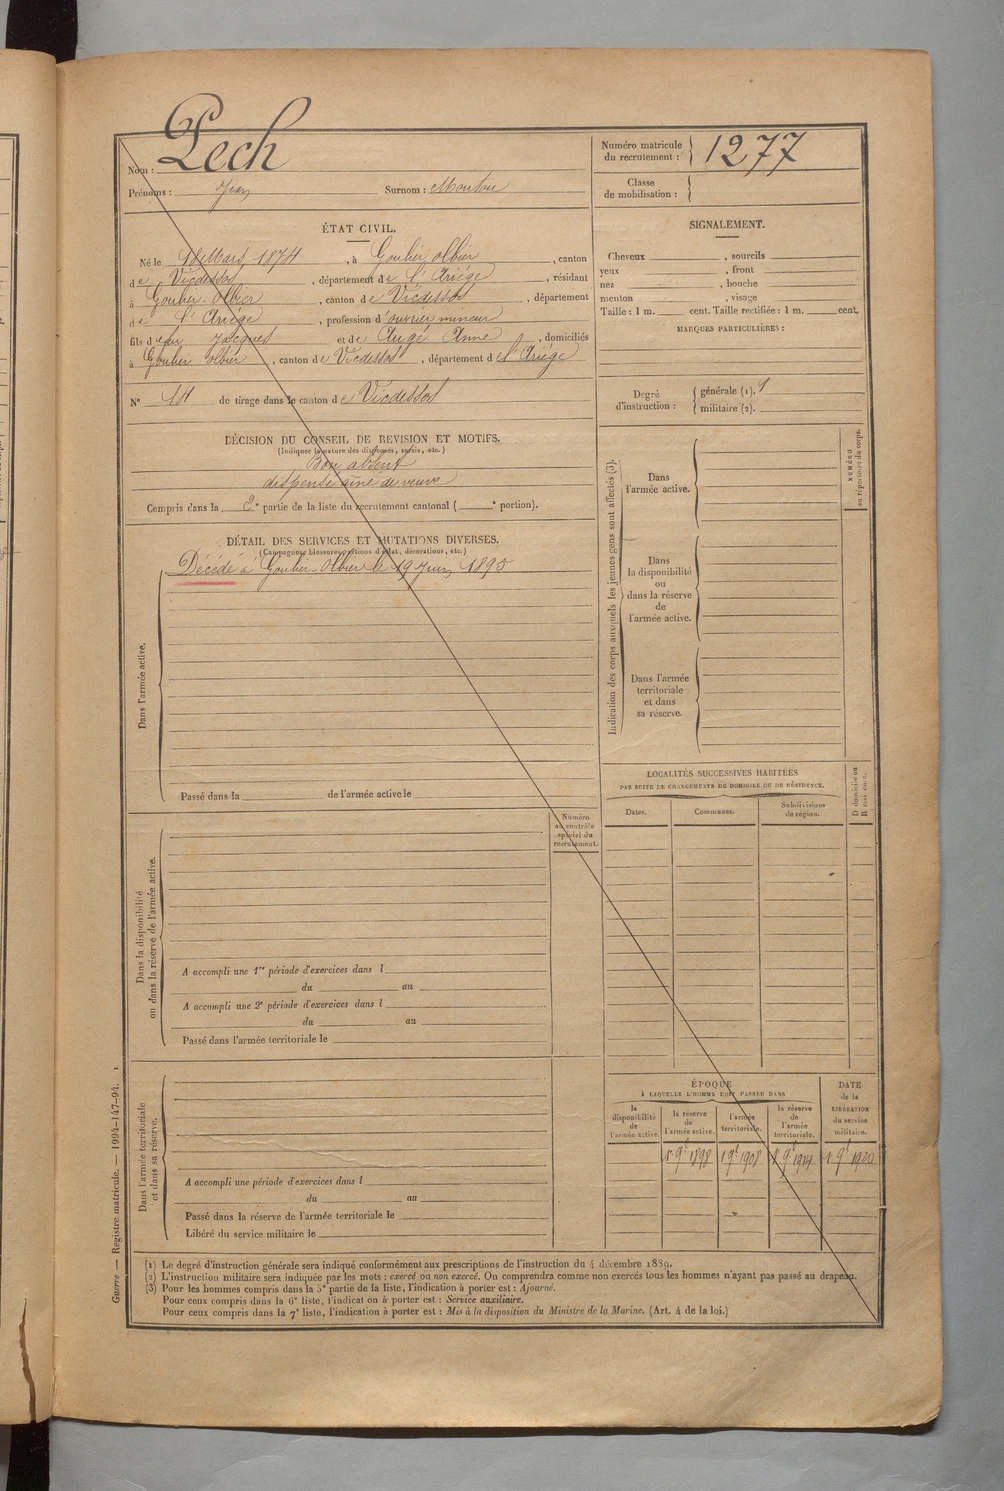 Nom : Pech
Prénoms : Jean Surnom : Moutou
Numéro matricule du recrutement : 1277
Classe de mobilisation :
ÉTAT CIVIL.
Né le 18 Mars 1874, à Goulier olbier, canton
de Vicdessos, département de l'Ariége, résidant
à Goulier-Olbier, canton de Vicdessos, département
de l'Ariége, profession d'ouvrier mineur
fils d feu Jacques et de Augé Anne, domiciliés
à Goulier olbier, canton de Vicdessos, département de l'Ariége
N° 14 de tirage dans le canton de Vicdessos
SIGNALEMENT.
Cheveux , sourcils
yeux , front
nez , bouche
menton , visage
Taille : 1 m. cent. Taille rectifiée : 1 m. cent.
MARQUES PARTICULIÈRES :
Degré d'instruction :
générale (1).
militaire (2).
DÉCISION DU CONSEIL DE REVISION ET MOTIFS.
(Indiquer la nature des dispenses, sursis, etc.)
Bon absent
dispensé aîné de veuve
Compris dans la 2e partie de la liste du recrutement cantonal ( e portion).
DÉTAIL DES SERVICES ET MUTATIONS DIVERSES.
(Campagnes, blessures, actions d'éclat, décorations, etc.)
Décédé à Goulier-Olbier le 19 Juin 1895
Dans l'armée active.
Passé dans la de l'armée active le
Indication des corps auxquels les jeunes gens sont affectés (3).
Dans l'armée active.
Dans la disponibilité ou dans la réserve de l'armée active.
Dans l'armée territoriale et dans sa réserve.
NUMÉRO au répertoire du corps.
LOCALITÉS SUCCESSIVES HABITÉES
PAR SUITE DE CHANGEMENTS DE DOMICILE OU DE RÉSIDENCE.
Dates. Communes. Subdivisions de région.
D domicile ou R résidence.
Numéro au contrôle spécial du recrutement.
Dans la disponibilité ou dans la réserve de l'armée active.
A accompli une 1re période d'exercices dans l
du au
A accompli une 2e période d'exercices dans l
du au
Passé dans l'armée territoriale le
Dans l'armée territoriale et dans sa réserve.
A accompli une période d'exercices dans l
du au
Passé dans la réserve de l'armée territoriale le
Libéré du service militaire le
ÉPOQUE
À LAQUELLE L'HOMME DOIT PASSER DANS
la disponibilité de l'armée active.
la réserve de l'armée active.
l'armée territoriale.
la réserve de l'armée territoriale.
DATE de la LIBÉRATION du service militaire.
1 9e 1898 1 9e 1908 1 9e 1914 1 9e 1920
(1) Le degré d'instruction générale sera indiqué conformément aux prescriptions de l'instruction du 4 décembre 1889.
(2) L'instruction militaire sera indiquée par les mots : exercé ou non exercé. On comprendra comme non exercés tous les hommes n'ayant pas passé au drapeau.
(3) Pour les hommes compris dans la 5e partie de la liste, l'indication à porter est : Ajourné.
Pour ceux compris dans la 6e liste, l'indication à porter est : Service auxiliaire.
Pour ceux compris dans la 7e liste, l'indication à porter est : Mis à la disposition du Ministre de la Marine. (Art. 4 de la loi.)
Guerre — Registre matricule. — 1994-147-94.